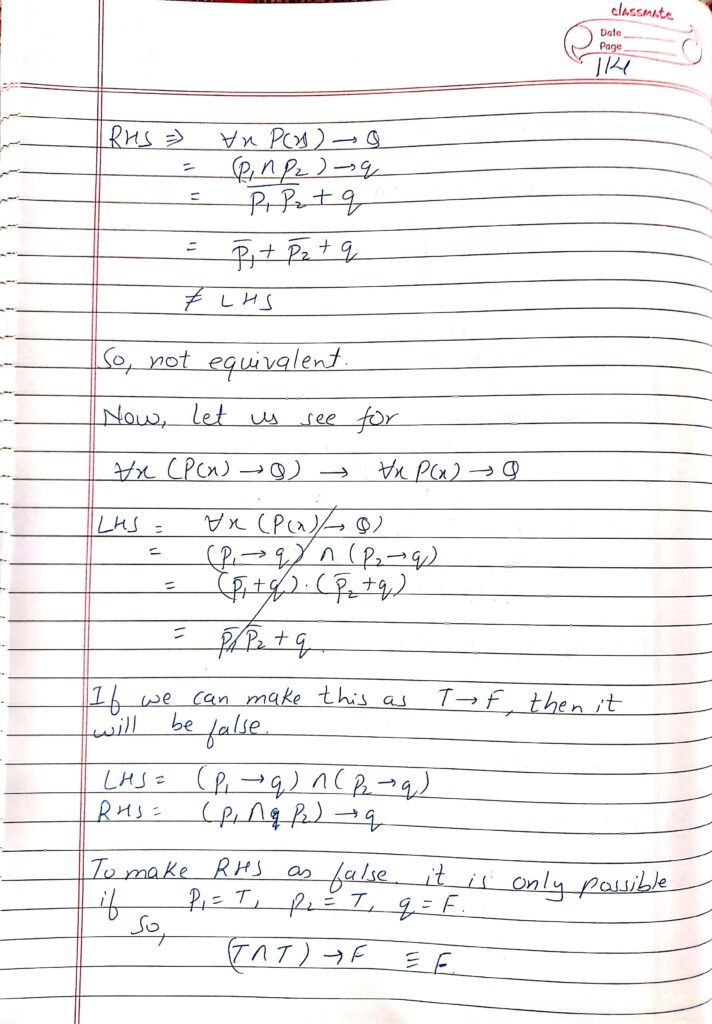 classmate
Date
Page
114
RHS ⇒ ∀x P(x) → Q
= (p₁ ∩ p₂) → q
= \overline{p₁ p₂} + q
= p̄₁ + p̄₂ + q
≠ LHS
So, not equivalent.
Now, let us see for
∀x (P(x) → Q) → ∀x P(x) → Q
LHS = ∀x (P(x) → Q)
= (p₁ → q) ∩ (p₂ → q)
= (p̄₁ + q) . (p̄₂ + q)
= p̄₁ p̄₂ + q
If we can make this as T → F, then it
will be false.
LHS = (p₁ → q) ∩ (p₂ → q)
RHS = (p₁ ∩ p₂) → q
To make RHS as false. it is only possible
if p₁ = T, p₂ = T, q = F.
So,
(T ∩ T) → F ≡ F.